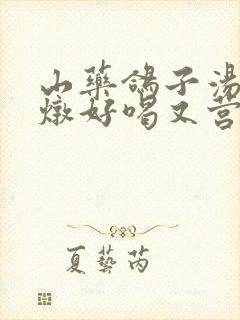 山藥鴿子湯
燉好喝又營
夏藝芮